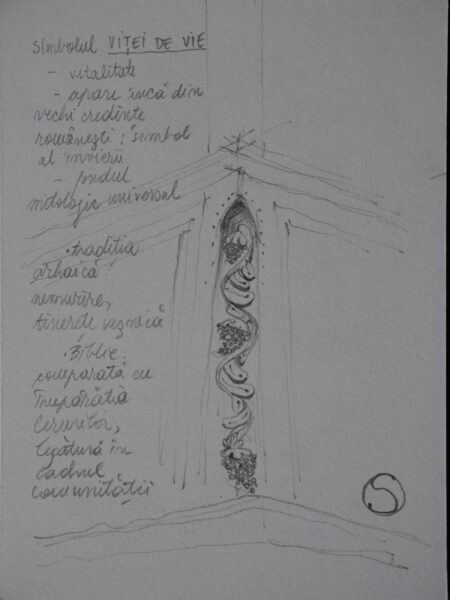 simbolul VIȚEI DE VIE
- vitalitate
- apare încă din
vechi credințe
românești: simbol
al învierii
- fondul
mitologic universal
• tradiția
arhaică:
nemurire,
tinerețe veșnică
• Biblie:
comparată cu
Împărăția
Cerurilor,
legătură în
cadrul
comunității
S